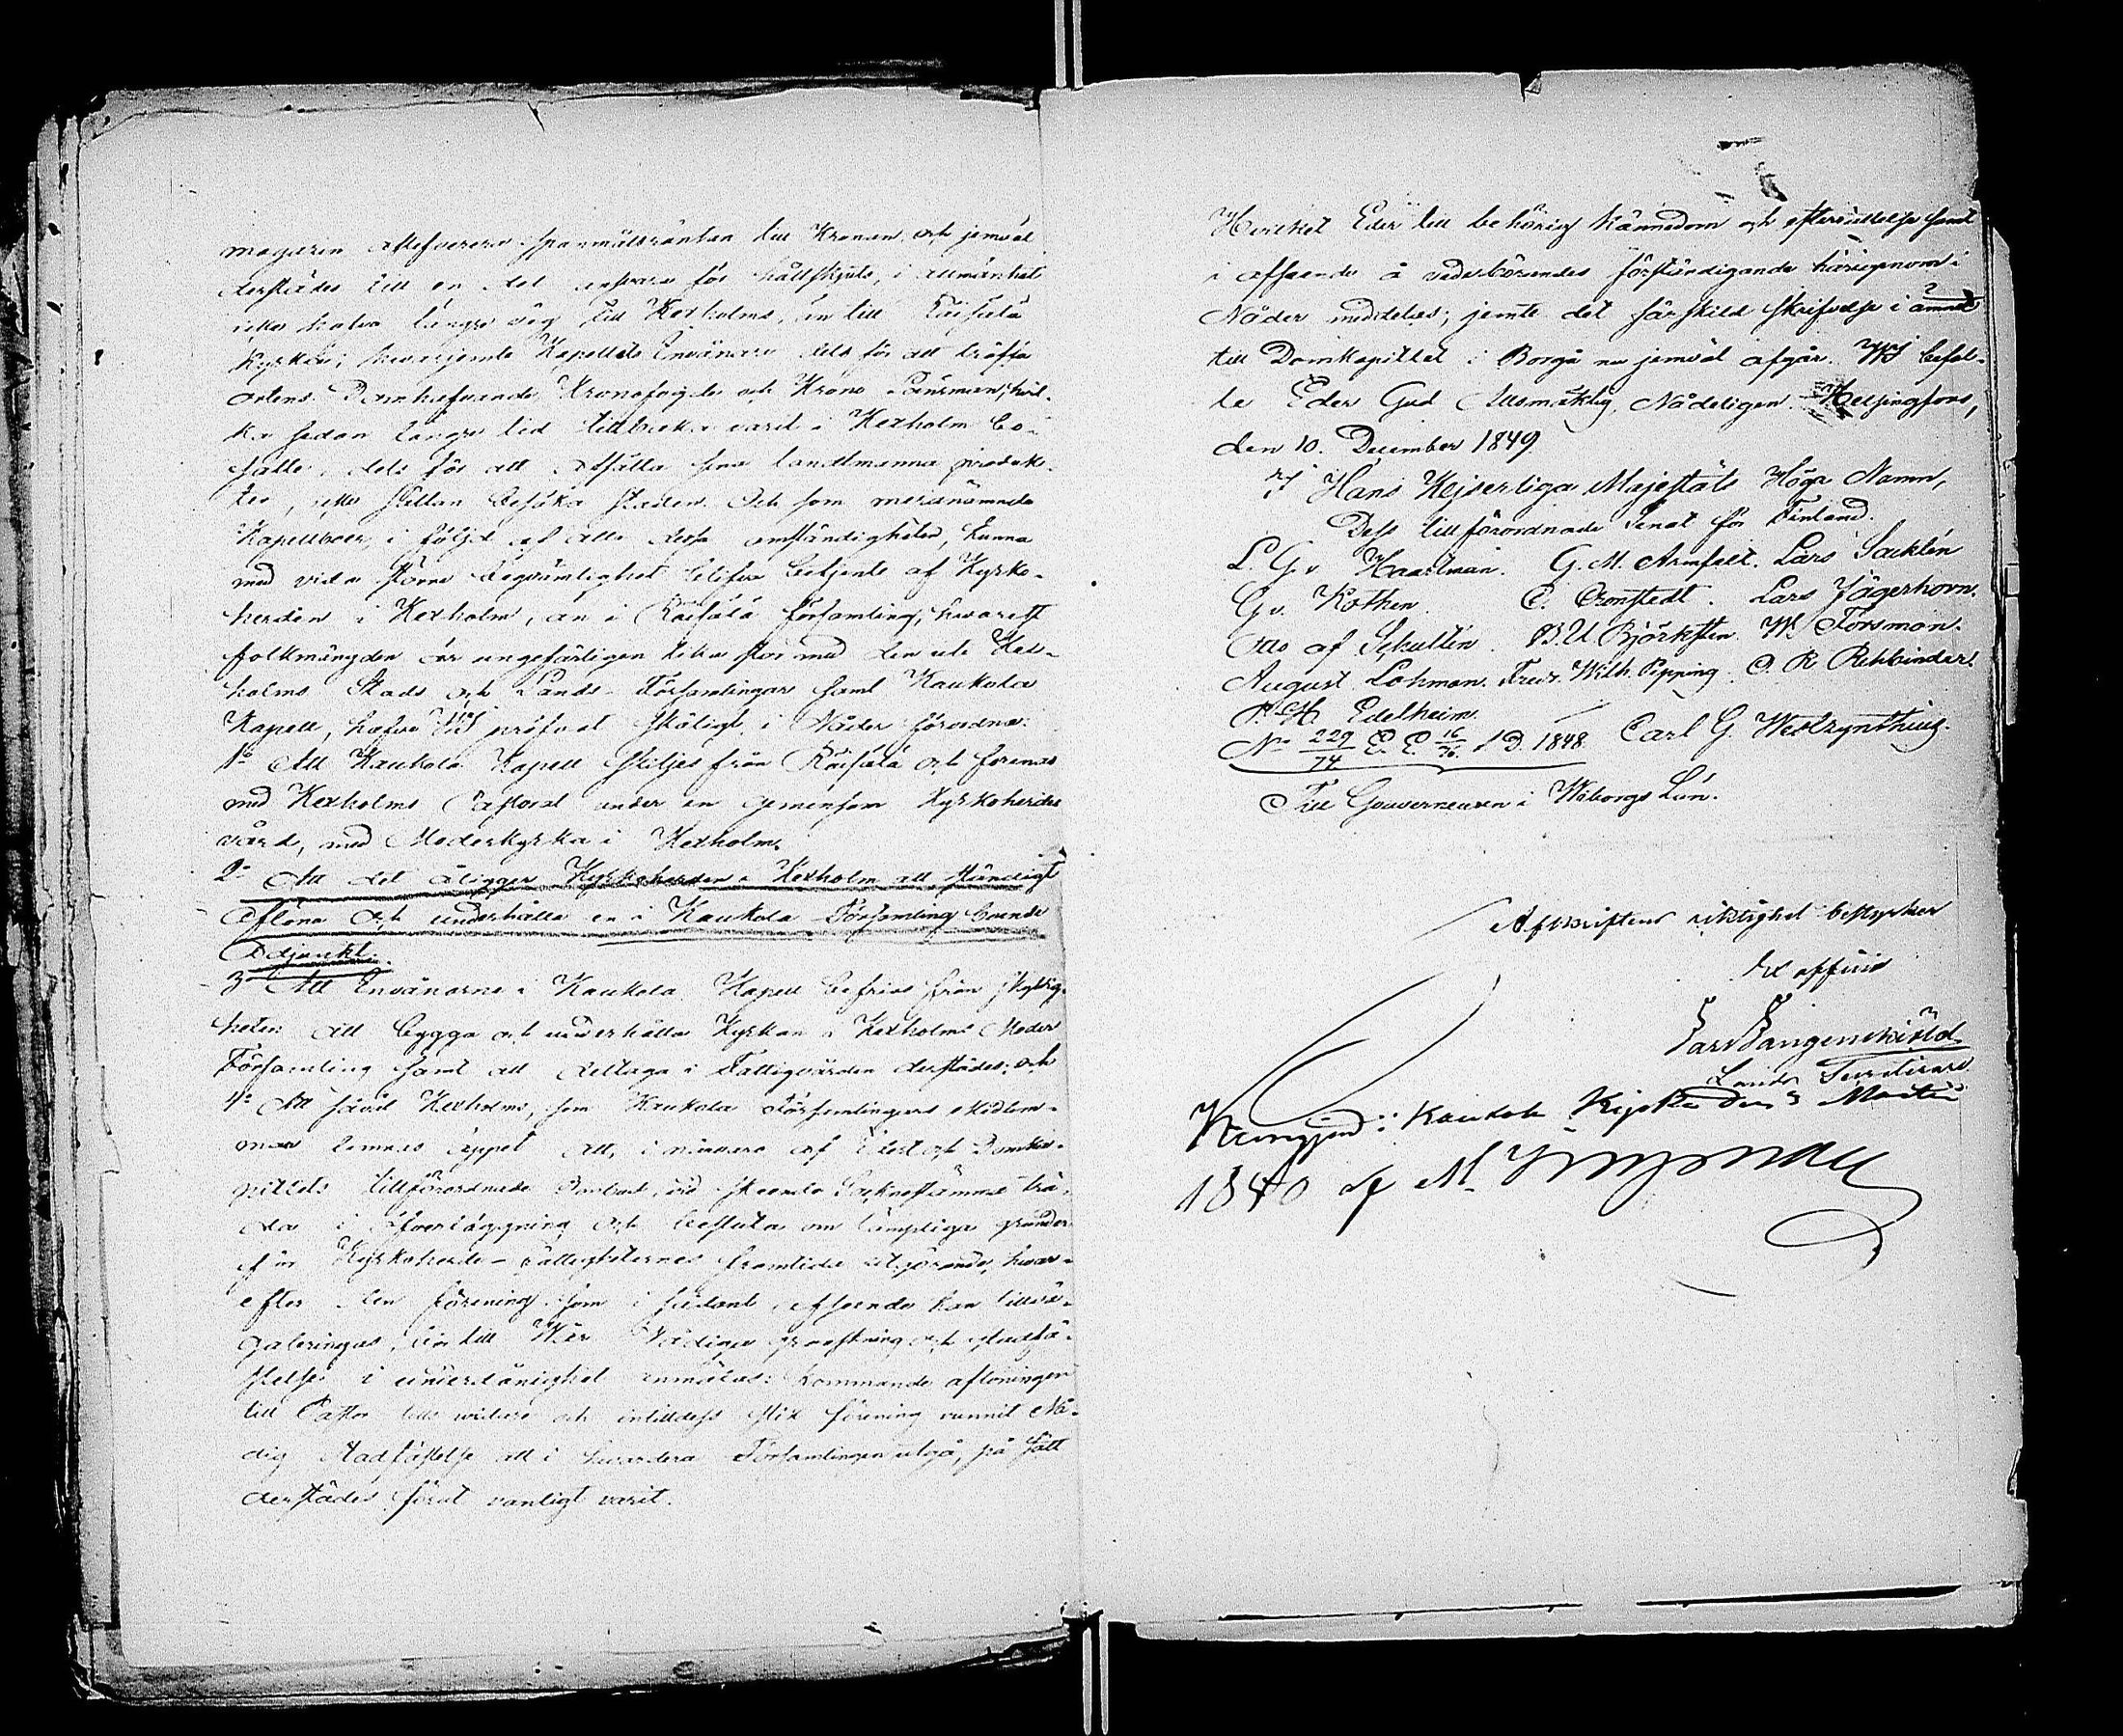 magazin aflefverera spanmålsräntan till Kronan, och jemväl
derstädes till en del ansvara för hållskjuts, i allmänhet
icke halva längre väg till Kexholms, än till Räisälä
Kyrka; hvarjemte Kapellets Invånare dels för att träffa
ortens Domhafvande Kronofogde och Krono-Länsman, hvil-
ka sedan längre tid tillbaka varit i Kexholm bo-
satte, dels för att afsätta sina landtmanna produk-
ter, icke sällan besöka staden. Och som meranämnda
Kapellboer, i följd af alla dessa omständigheter, kunna
med vida större beqvämlighet blifva betjente af Kyrko-
herden i Kexholm, än i Räisälä församling, hvarest
folkmängden är ungefärligen lika stor med den uti Kex-
holms Stads och Lands-Församlingar samt Kaukola
Kapell, hafva Wij pröfvat skäligt i Nåder förordna:
1o Att Kaukola Kapell skiljes från Räisälä och förenas
med Kexholms Pastorat under en gemensam Kyrkoherdes
vård, med Moderkyrka i Kexholm.
2o Att det åligger Kyrkoherden i Kexholm att ständigt
aflöna och underhålla en i Kaukola Församling boende
Adjunkt.
3o Att Invånarne i Kaukola Kapell befrias från skyldig-
heten att bygga och underhålla Kyrkan i Kexholms Moder
Församling samt att deltaga i Fattigvården derstädes; och
4o Att såväl Kexholms, som Kaukola Församlingars medlem-
mar lemnas öppet att, i närvaro af Edert och Domka-
pitlets tillförordnade Ombud, vid skeende Sockenstämma trä-
da i öfverläggning och besluta om lämpliga grunder
för Kyrkoherde-rättigheternes framtida utgörande, hvar-
efter den förening, som i sådant afseende kan tillvä-
gabringas, bör till Wår Nådiga granskning och stadfä-
stelse i underdånighet anmälas: kommande aflöningen
till Pastor tills vidare och intilldess slik förening vunnit Nå-
dig stadfästelse att i hvardera Församlingen utgå, på sätt
derstädes förut vanligt varit.
Hvilket Eder till behörig kännedom och efterrättelse samt
i afseende å vederbörandes förständigande härigenom i
Nåder meddelas; jemte det särskild skrifvelse i ämnet
till Domkapitlet i Borgå nu jemväl afgår. Wij befal-
le Eder Gud Allsmäktig Nådeligen. Helsingfors,
den 10. December 1849.
I Hans Kejserliga Majestäts Höga Namn,
Dess tillförordnade Senat för Finland.
L. G. v. Haartman. G. M. Armfelt. Lars Sacklén
G. v. Kothen. C. Cronstedt. Lars Jägerhorn.
Otto af Schultén. B. U. Björkstén. W. Forsman.
August Lohman. Fredr. Wilh. Pipping. O. R. Rehbinder.
P. H. Edelheim.
No 229/74. E. E. 16/76. S. D. 1848. Carl G. Westzynthius.
Till Gouverneuren i Wiborgs Län.
Afskriftens riktighet bestyrker
Ex officio
Lars Langenskiöld
Lands Secreterare
Kungjord i Kaukola Kyrka den 3 Martii
1840 af M.